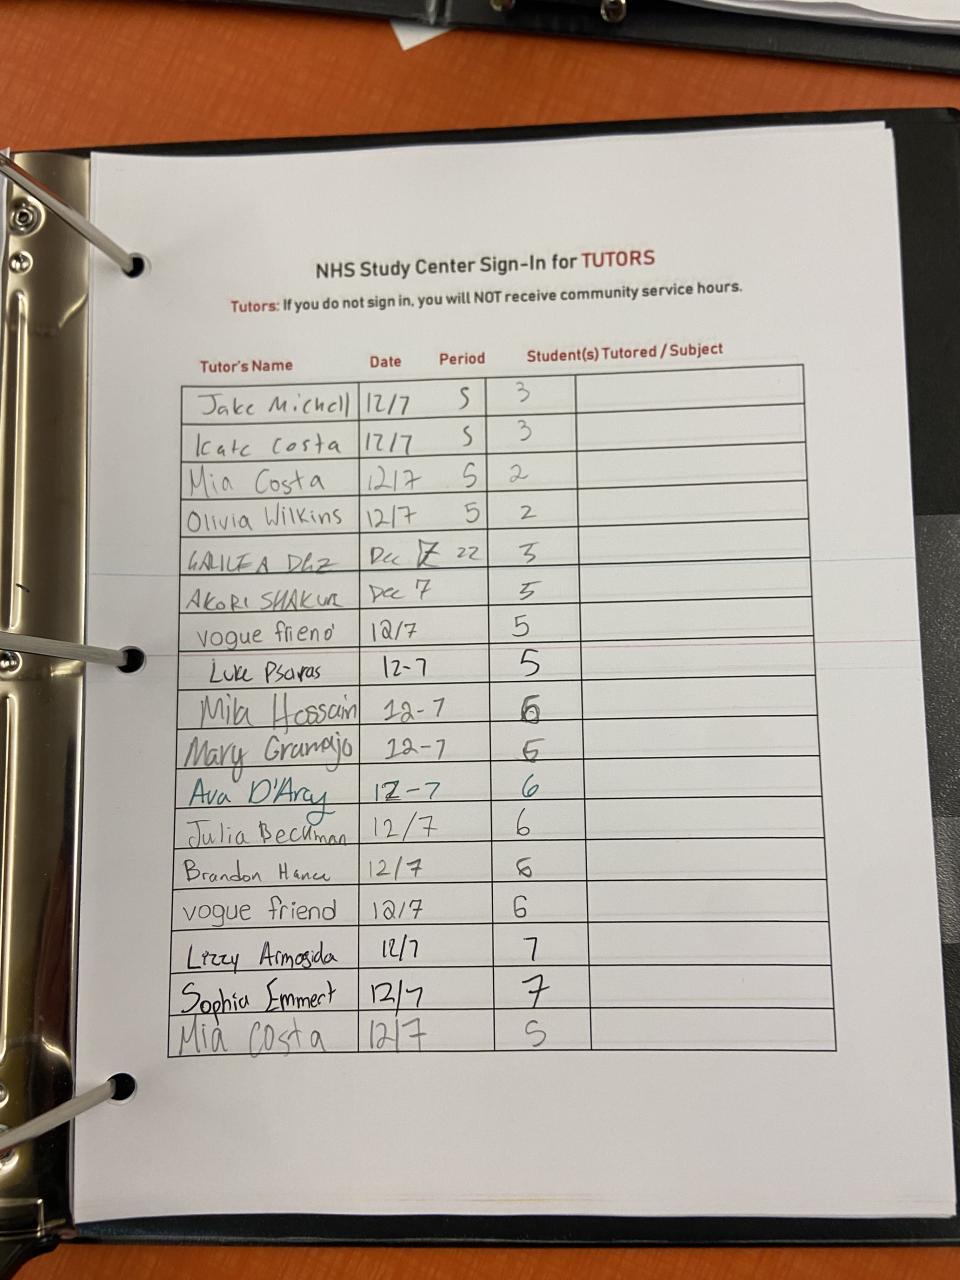 NHS Study Center Sign-In for TUTORS
Tutors: If you do not sign in, you will NOT receive community service hours.
Tutor's Name Date Period Student(s) Tutored / Subject
Jake Michell 12/7 5 3
Kate Costa 12/7 5 3
Mia Costa 12/7 5 2
Olivia Wilkins 12/7 5 2
GALILEA DGZ Dec 7 22 3
AKORI SHAKUR Dec 7 5
vogue friend 12/7 5
Luke Psaras 12-7 5
Mila Hossain 12-7 6
Mary Gramajo 12-7 6
Ava D'Arcy 12-7 6
Julia Beckman 12/7 6
Brandon Hance 12/7 6
vogue friend 12/7 6
Lizzy Armogida 12/7 7
Sophia Emmert 12/7 7
Mia Costa 12/7 5